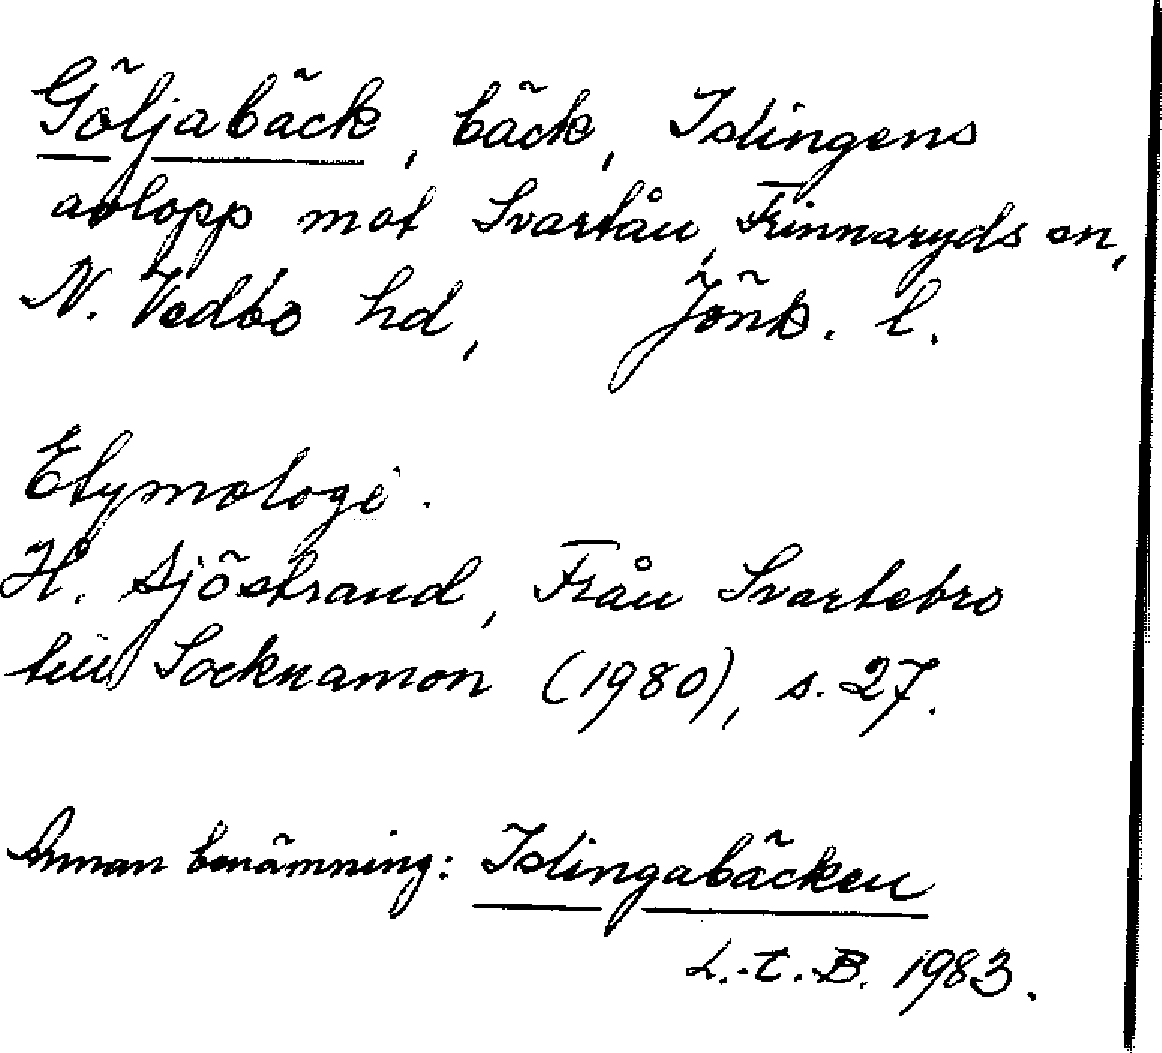 Göljabäck, bäck, Islingens
avlopp mot Svartån, Frinnaryds sn,
N. Vedbo hd, Jönk. l.
Etymologi.
H. Sjöstrand, Från Svartebro
till Socknamon (1980), s. 27.
Annan benämning: Islingabäcken
L.-E. B. 1983.